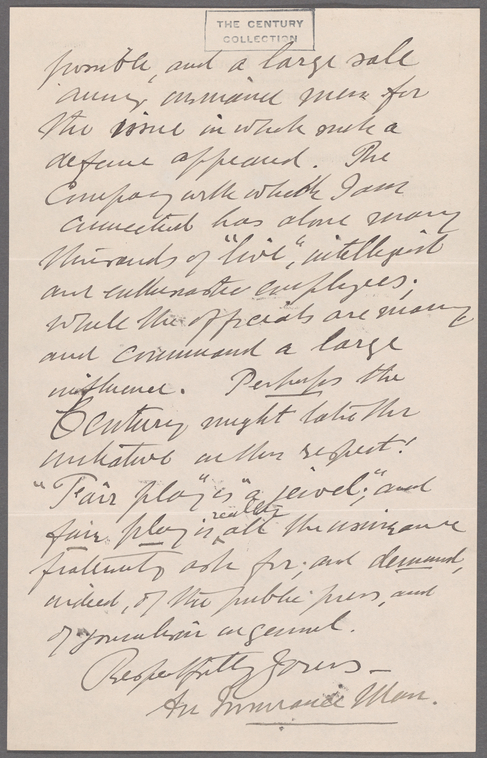 THE CENTURY
COLLECTION
possible, and a large sale
among insurance men for
the issue in which such a
defence appeared. The
Company with which I am
connected has alone many
thousands of "live", intelligent
and enthusiastic employees;
while the officials are many
and command a large
influence. Perhaps the
Century might take the
initiative in this respect!
"Fair play" is "a jewel;" and
fair play is really all the insurance
fraternity ask for, and demand,
indeed, of the public press, and
of journalism in general.
Respectfully Yours —
An Insurance Man.